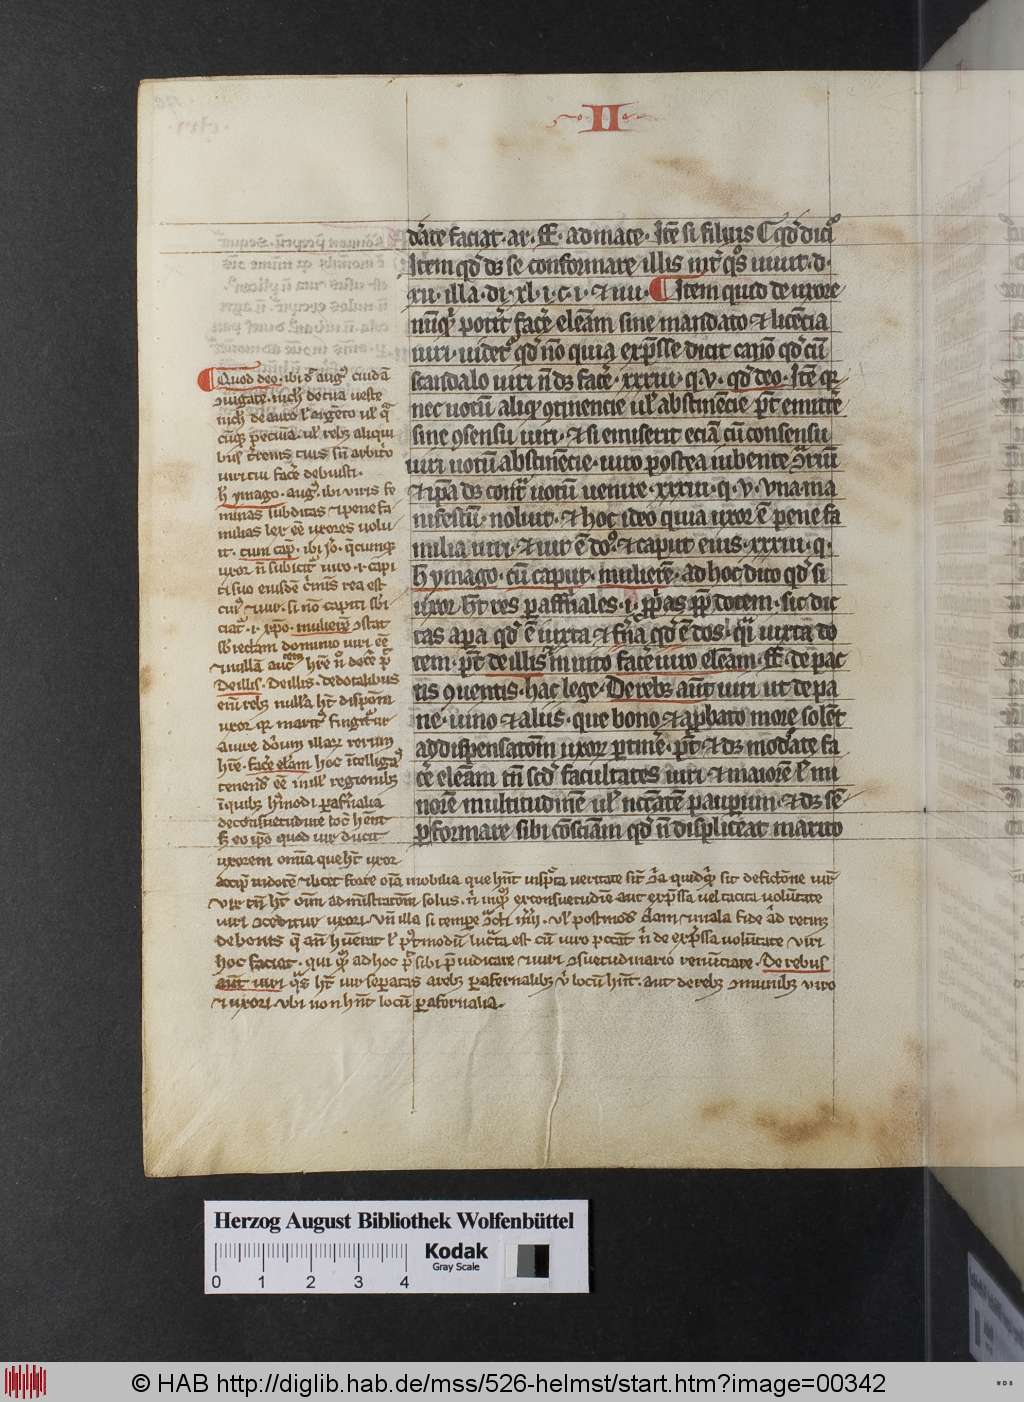 II
dr̄ate faciat. ar. ff. ad mace. Itē si filuis C qd̄ dictū
Item qd̄ dꝫ se conformare illis int̄ q̊s uiuit. d.
xli. illa. di. xl. i. c. i. ⁊ iiii. ¶ Item quid de uxore
nūqͥd poterit facē eleām sine mandato ⁊ licēcia
uiri. uidetͬ qd̄ nō quia expͣsse dicit canō qd̄ cū
scandalo uiri n̄ dꝫ facē. xxxiii. q. v. qd̄ deo. Itē qꝛ
nec uotū aliqͦ ꝯtinencie ul̓ abstinēcie pōt emittē
sine ꝯsensu uiri. ⁊ si emiserit eciā cū consensu
uiri uotū abstinēcie. uiro postea iubente ꝯͣriū
⁊ ip̄a dꝫ contͣ uotū uenire. xxxiii. q. v. vna ma
nifestū. noluit. ⁊ hoc ideo quia uxor ē pene fa
milia uiri. ⁊ uir ē dō. ⁊ caput eius. xxxiii. q.
h̄ ymago. cū caput. mulierē. ad hoc dico qd̄ si
uxor h̄t res paffn̄ales. i. ꝓp̄as pꝑ dotem. sic dic
tas a para qd̄ ē iuxta ⁊ fn̄a qd̄ ē dos. q̄i iuxta do
tem. pōt de illis īuito facē uiro eleām. ff. de pac
tis ꝯuentis. hac lege. De rebꝫ aūt uiri ut de pa
ne. uino ⁊ aliis. que bono ⁊ apꝓbato more solēt
ad dispensatōm uxorꝫ ꝑtinē. pōt ⁊ dꝫ modāte fa
cē eleām tn̄ scd̄ facultates uiri ⁊ maiorē l̓ mi
norē multitudinē ul̓ nccātē pauꝑum. ⁊ dꝫ sē
ꝑ formare sibi cōsciām qd̄ n̄ displiceat marito
¶ Quod deo. ibi d̄ augꝰ cuidā
ꝯiugate. nich̓ de tua ueste
nich̓ de auro l̓ argēto ul̓ qͣ
cūqꝫ pecūia. ul̓ rebꝫ aliqui
bus tērenis tuis sn̄ arbitͦ
uiri tui facē debuisti.
h̄ ymago. augꝰ. ibi viris fe
minas subditas ⁊ pene fa
mulas lex eē uxores uolu
it. cum capͧ. ibi Jo. qͣcumqꝫ
uxor n̄ subicit̄ uiro. i. capi
ti suo eiusdē cͥminis rea est
cuiꝰ ⁊ uir. si nō capiti sb̄i
ciatͬ. i. xp̄o. mulierē ꝯstat
sb̄iectam dominio uiri eē
⁊ nullā auctem h̄re nͦ docē pͭ
De illis. De illis. de dotalibus
enī rebꝫ nulla h̄t disponē
uxor qꝛ maritꝰ fingitur
a iure dōm illarꝫ rerum
h̄re. facē elām hoc ītelligatͬ
tenend̄ eē in illꝭ regionibꝫ
ī quibꝫ hꝰmodi paffn̄alia
de consuetudine locꝰ h̄ent
s; eo ip̄o quod uir ducit
uxorem omīa que h̄t uxor
accipͭ uidorē ⁊ licet forte oīa mobilia que h̄nt inspͨta ueritate sit ꝯͣa quidqͥd sit de fictōne iurꝭ
Vir tn̄ h̄t oīm administratōm solus. n̄ inqͣm ex consuetudīe aut expͣssa vel tacita uolūtate
uiri ꝯceditur uxori. Vn̄ illa si tempore ꝯͣcti mr̄ij. ul̓ postmodū clam ⁊ mala fide ad retinꝫ
de bonis qͤ an̄ h̄uerat l̓ pͦtmodū lucͣta est cū uiro peccat n̄ de expͣssa uolūtate viri
hoc faciat. qui qͦm ad hoc pōt sibi pͤiudicare ⁊ uiri ꝯsuetudinario renūciare. De rebus
aūt uiri qͣs h̄t uir separatas a rebꝫ paffernalibꝫ vͥ locū h̄nt. aut de rebꝫ ꝯmunibꝫ viro
⁊ uxori. vbi non h̄nt locū paffernalia.
Herzog August Bibliothek Wolfenbüttel
Kodak
Gray Scale
0 1 2 3 4
© HAB http://diglib.hab.de/mss/526-helmst/start.htm?image=00342